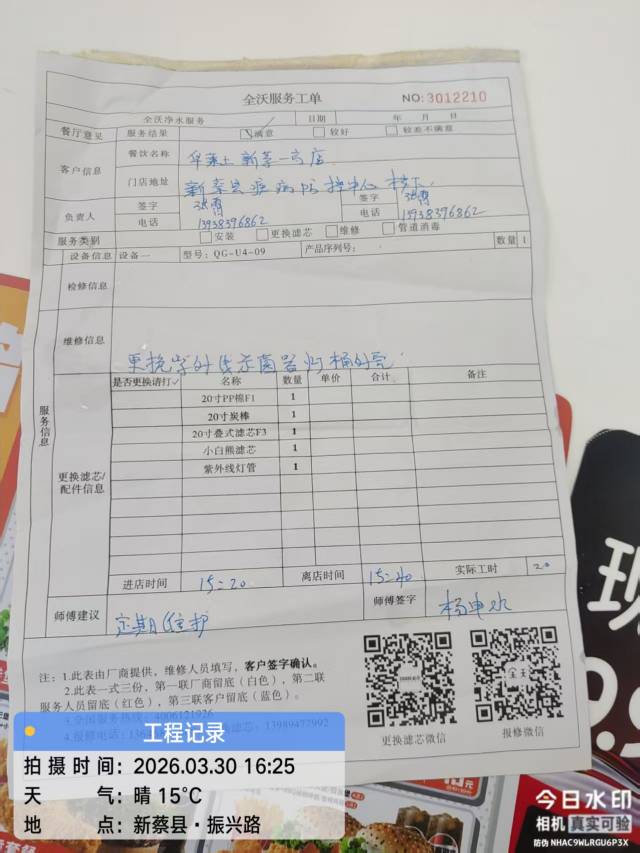 全沃服务工单
NO:3012210
全沃净水服务 日期 年 月 日
餐厅意见 服务结果 满意 较好 较差不满意
客户信息 餐饮名称 华莱士 新蔡一高店
门店地址 新蔡县疾病防控中心
负责人 签字 签字
电话 15938396862 电话 15938396862
服务类别 安装 更换滤芯 维修 管道消毒
设备信息 设备一 型号:QG-U4-09 产品序列号: 数量 1
检修信息
服务信息
维修信息 更换紫外线杀菌器灯桶外壳
更换滤芯/配件信息
是否更换请打✓ 名称 数量 单价 合计 备注
20寸PP棉F1 1
20寸炭棒 1
20寸叠式滤芯F3 1
小白熊滤芯 1
紫外线灯管 1
进店时间 15:20 离店时间 15:40 实际工时 20
师傅建议 定期维护 师傅签字
注:1.此表由厂商提供,维修人员填写,客户签字确认。
2.此表一式三份,第一联厂商留底(白色),第二联
服务人员留底(红色),第三联客户留底(蓝色)。
3.全国服务热线:4006121926
4.报修电话: 13989477992
更换滤芯微信 报修微信
工程记录
拍摄时间:2026.03.30 16:25
天气:晴 15°C
地点:新蔡县·振兴路
今日水印
相机 真实可验
防伪 NHAC9WLRGU6P3X